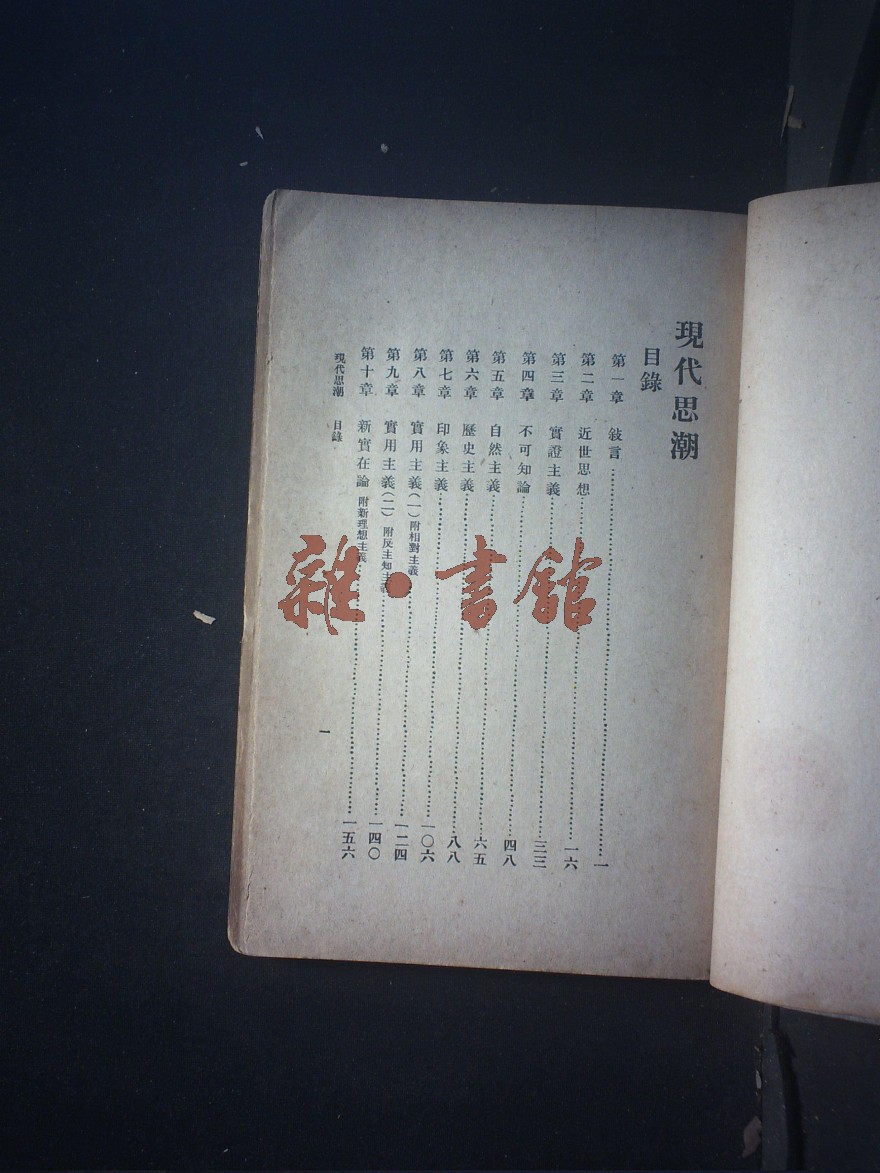 現代思潮
目錄
第一章 敍言…………一
第二章 近世思想…………一六
第三章 實證主義…………三三
第四章 不可知論…………四八
第五章 自然主義…………六五
第六章 歷史主義…………八八
第七章 印象主義…………一〇六
第八章 實用主義(一)附相對主義…………一二四
第九章 實用主義(二)附反主知主義…………一四〇
第十章 新實在論 附新理想主義…………一五六
現代思潮 目錄 一
雜·書館